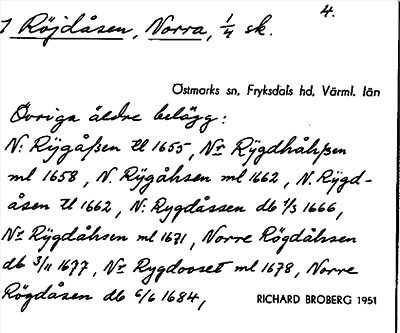 1 Röjdåsen, Norra, 1/4 sk. 4.
Östmarks sn, Fryksdals hd, Värml. län
Övriga äldre belägg:
N: Rÿgåßen tl 1655, Nr Rÿgdhåhßen
ml 1658, N. Rÿgåhsen ml 1662, N. Rÿgd-
åsen tl 1662, N: Rygdåssen db 1/3 1666,
Nr Rÿgdåhsen ml 1671, Norre Rögdåhssen
db 3/11 1677, Nr Rygdooset ml 1678, Norre
Rögdåsen db 6/6 1684,
RICHARD BROBERG 1951